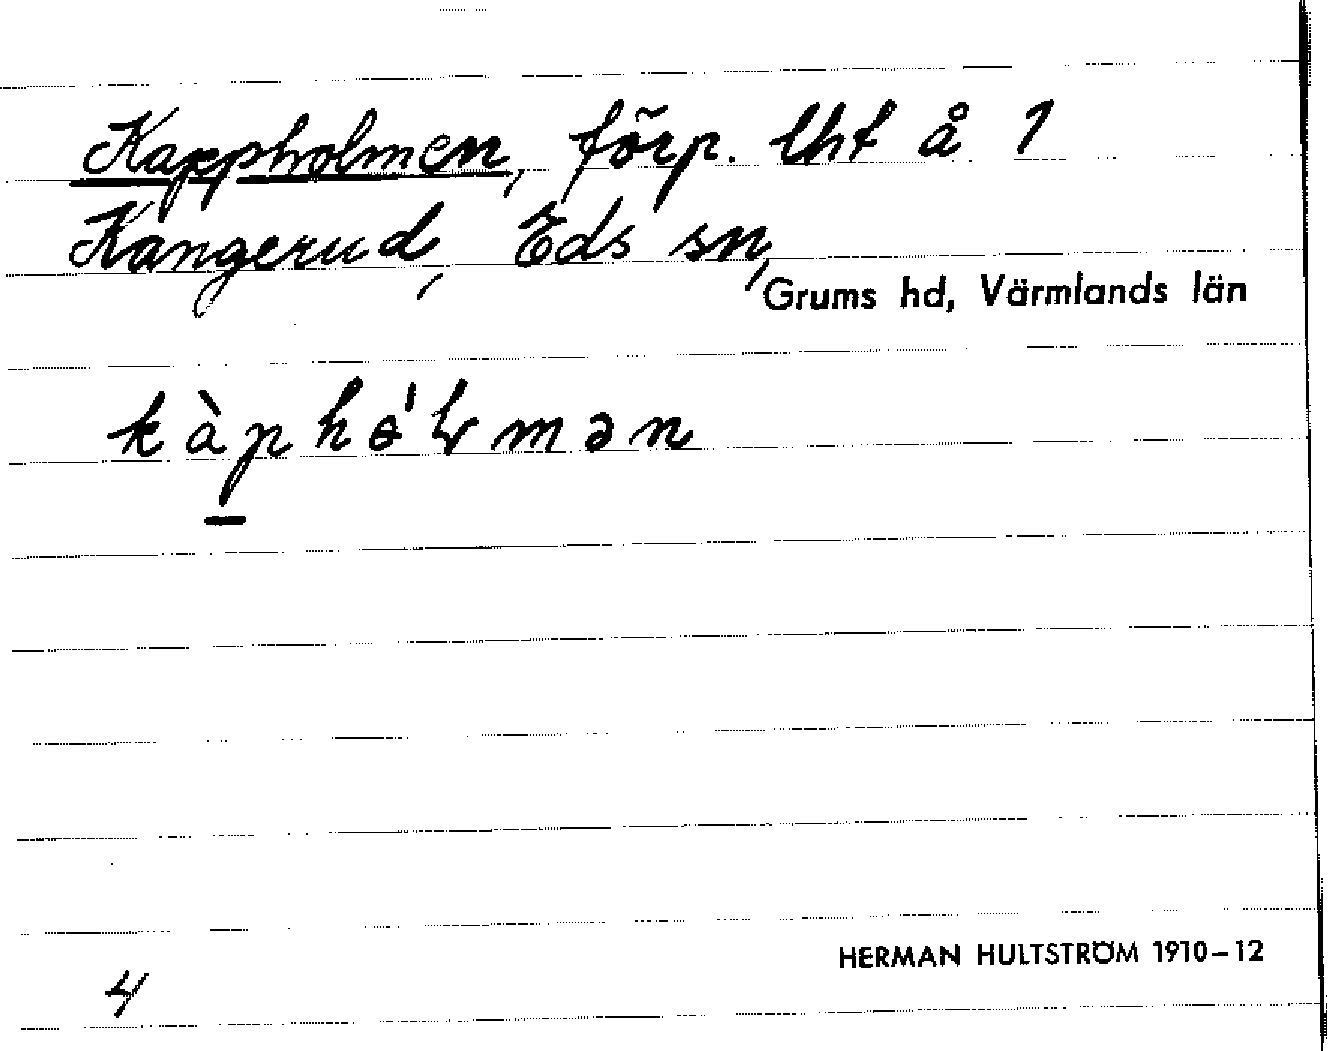 Kappholmen, förp. lht å 1
Kangerud, Eds sn,
Grums hd, Värmlands län
HERMAN HULTSTRÖM 1910-12
4